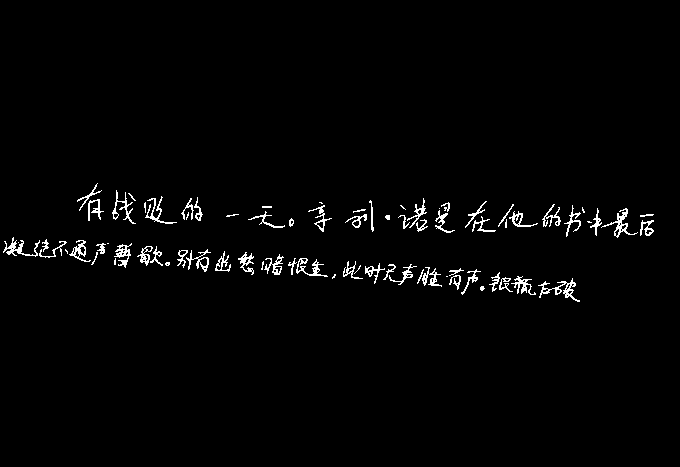 有战败的一天。亨利·诺是在他的书中最后
凝绝不通声暂歇。别有幽愁暗恨生,此时无声胜有声。银瓶乍破